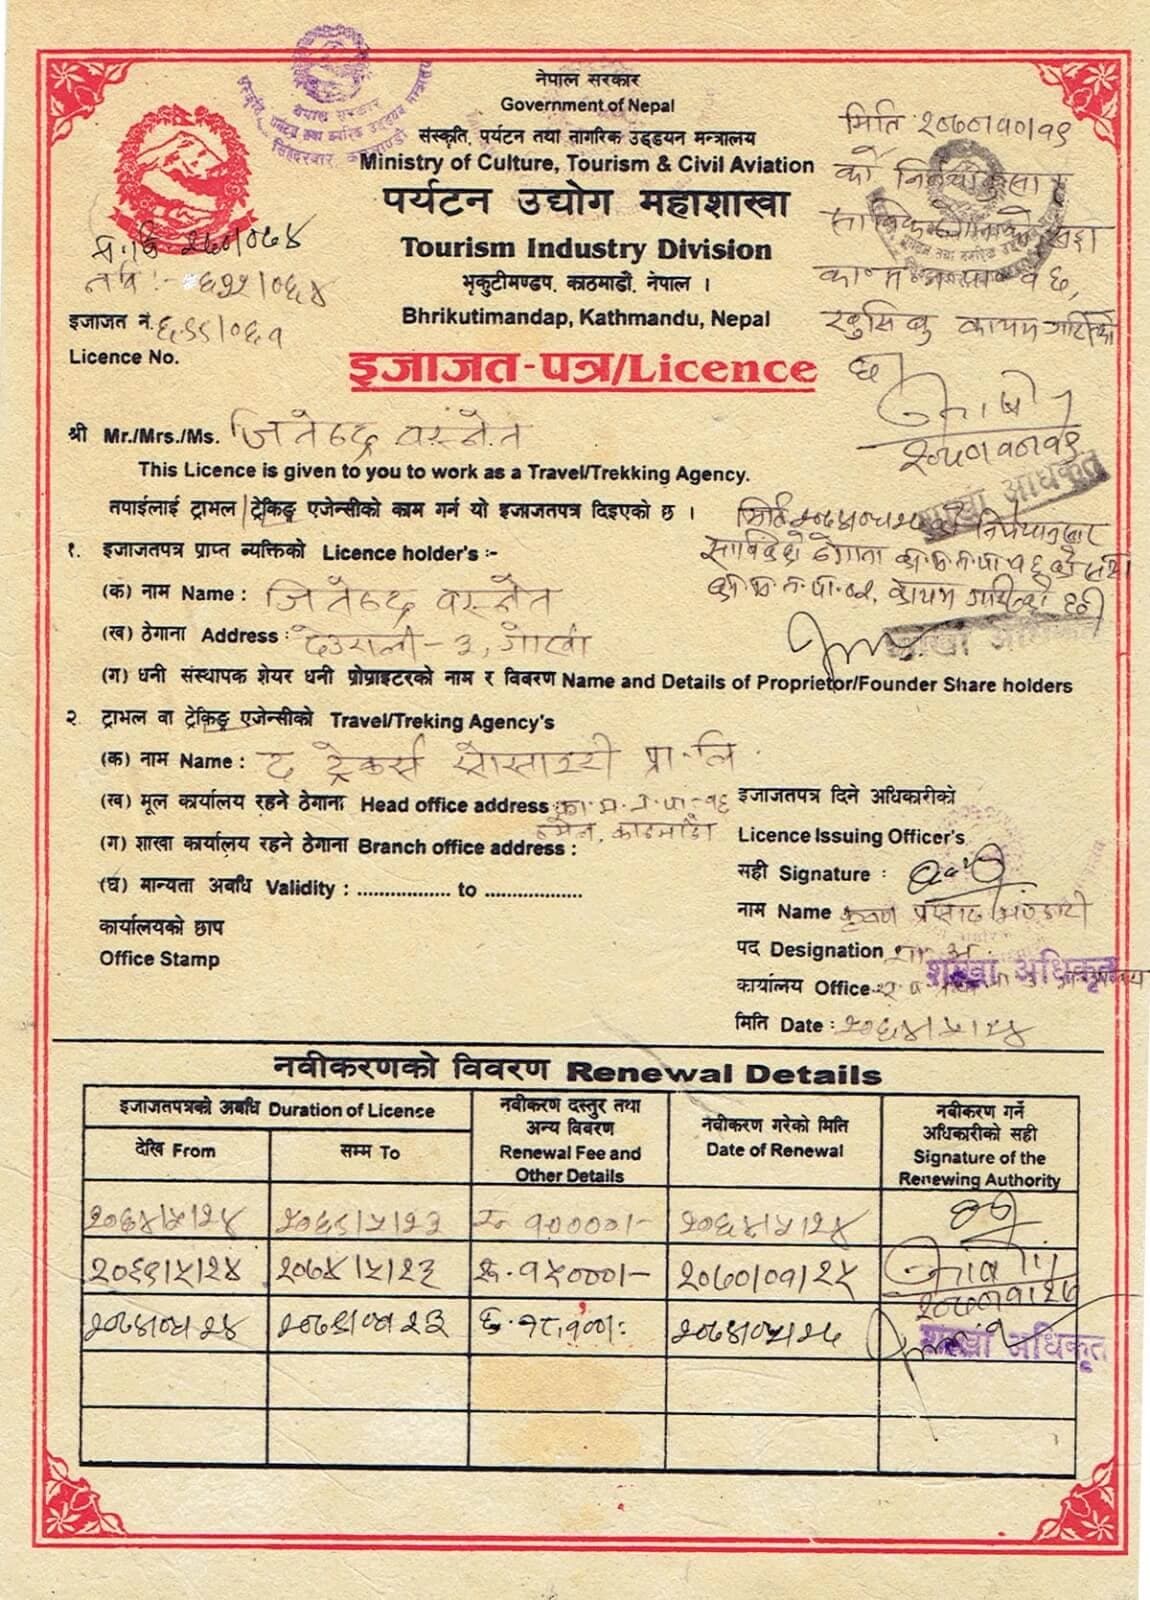 नेपाल सरकार
Government of Nepal
संस्कृति, पर्यटन तथा नागरिक उड्डयन मन्त्रालय
Ministry of Culture, Tourism & Civil Aviation
पर्यटन उद्योग महाशाखा
Tourism Industry Division
भृकुटीमण्डप, काठमाडौं, नेपाल ।
Bhrikutimandap, Kathmandu, Nepal
मिति २०७०।१०।१९
इजाजत नं.
Licence No.
इजाजत-पत्र/Licence
श्री Mr./Mrs./Ms. जितेन्द्र बस्नेत
This Licence is given to you to work as a Travel/Trekking Agency.
तपाईलाई ट्राभल/ट्रेकिङ्ग एजेन्सीको काम गर्न यो इजाजतपत्र दिइएको छ ।
१. इजाजतपत्र प्राप्त व्यक्तिको Licence holder's :-
(क) नाम Name : जितेन्द्र बस्नेत
(ख) ठेगाना Address : देउराली - ३, गोर्खा
(ग) धनी संस्थापक शेयर धनी प्रोप्राइटरको नाम र विवरण Name and Details of Proprietor/Founder Share holders
२. ट्राभल वा ट्रेकिङ्ग एजेन्सीको Travel/Treking Agency's
(क) नाम Name : द ट्रेकर्स सोसाइटी प्रा.लि.
(ख) मूल कार्यालय रहने ठेगाना Head office address का.म.न.पा.-१६
ठमेल, काठमाडौं
(ग) शाखा कार्यालय रहने ठेगाना Branch office address :
(घ) मान्यता अवधि Validity : ................. to .................
कार्यालयको छाप
Office Stamp
इजाजतपत्र दिने अधिकारीको
Licence Issuing Officer's
सही Signature :
नाम Name कृष्ण प्रसाद भण्डारी
पद Designation शा. अ.
शाखा अधिकृत
कार्यालय Office
मिति Date : २०६४।५।२४
नवीकरणको विवरण Renewal Details
इजाजतपत्रको अवधि Duration of Licence
देखि From
सम्म To
नवीकरण दस्तुर तथा
अन्य विवरण
Renewal Fee and
Other Details
नवीकरण गरेको मिति
Date of Renewal
नवीकरण गर्ने
अधिकारीको सही
Signature of the
Renewing Authority
२०६४।५।२४ २०६९।५।२३ रु १००००।- २०६४।५।२४
२०६९।५।२४ २०७४।५।२३ रु. १५०००।- २०७०।०१।२५
२०७४।०५।२४ २०७९।०५।२३ २०७४।०५।२६
शाखा अधिकृत